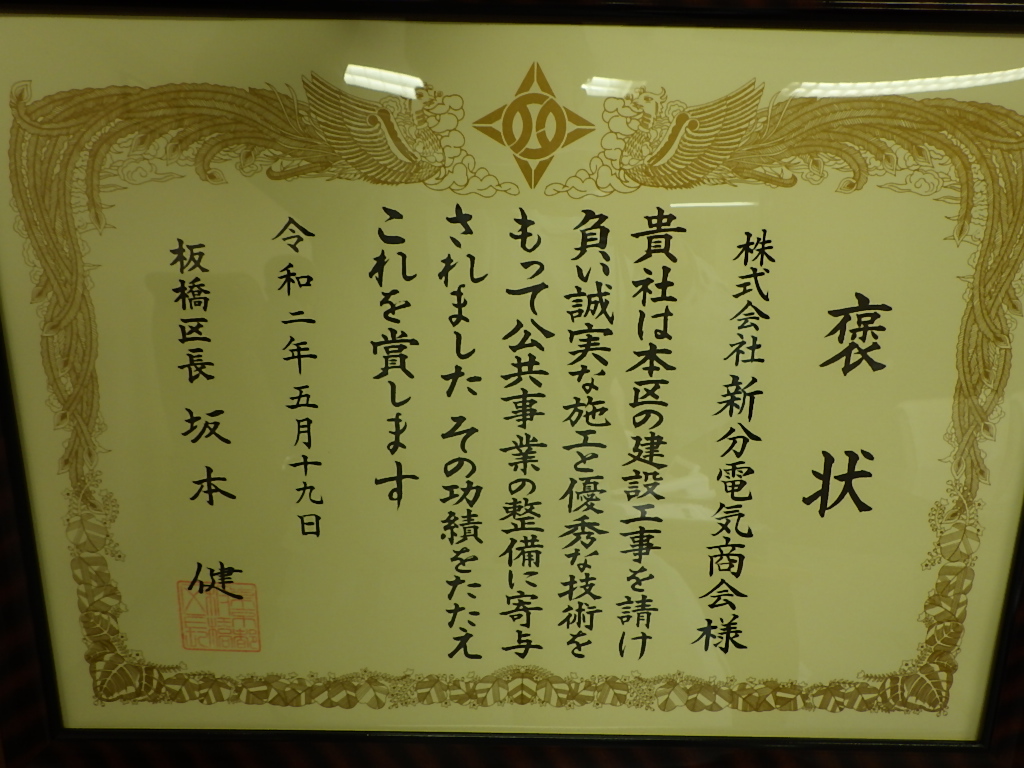 褒状
株式会社 新分電気商会様
貴社は本区の建設工事を請け
負い誠実な施工と優秀な技術を
もって公共事業の整備に寄与
されました その功績をたたえ
これを賞します
令和二年五月十九日
板橋区長 坂本 健